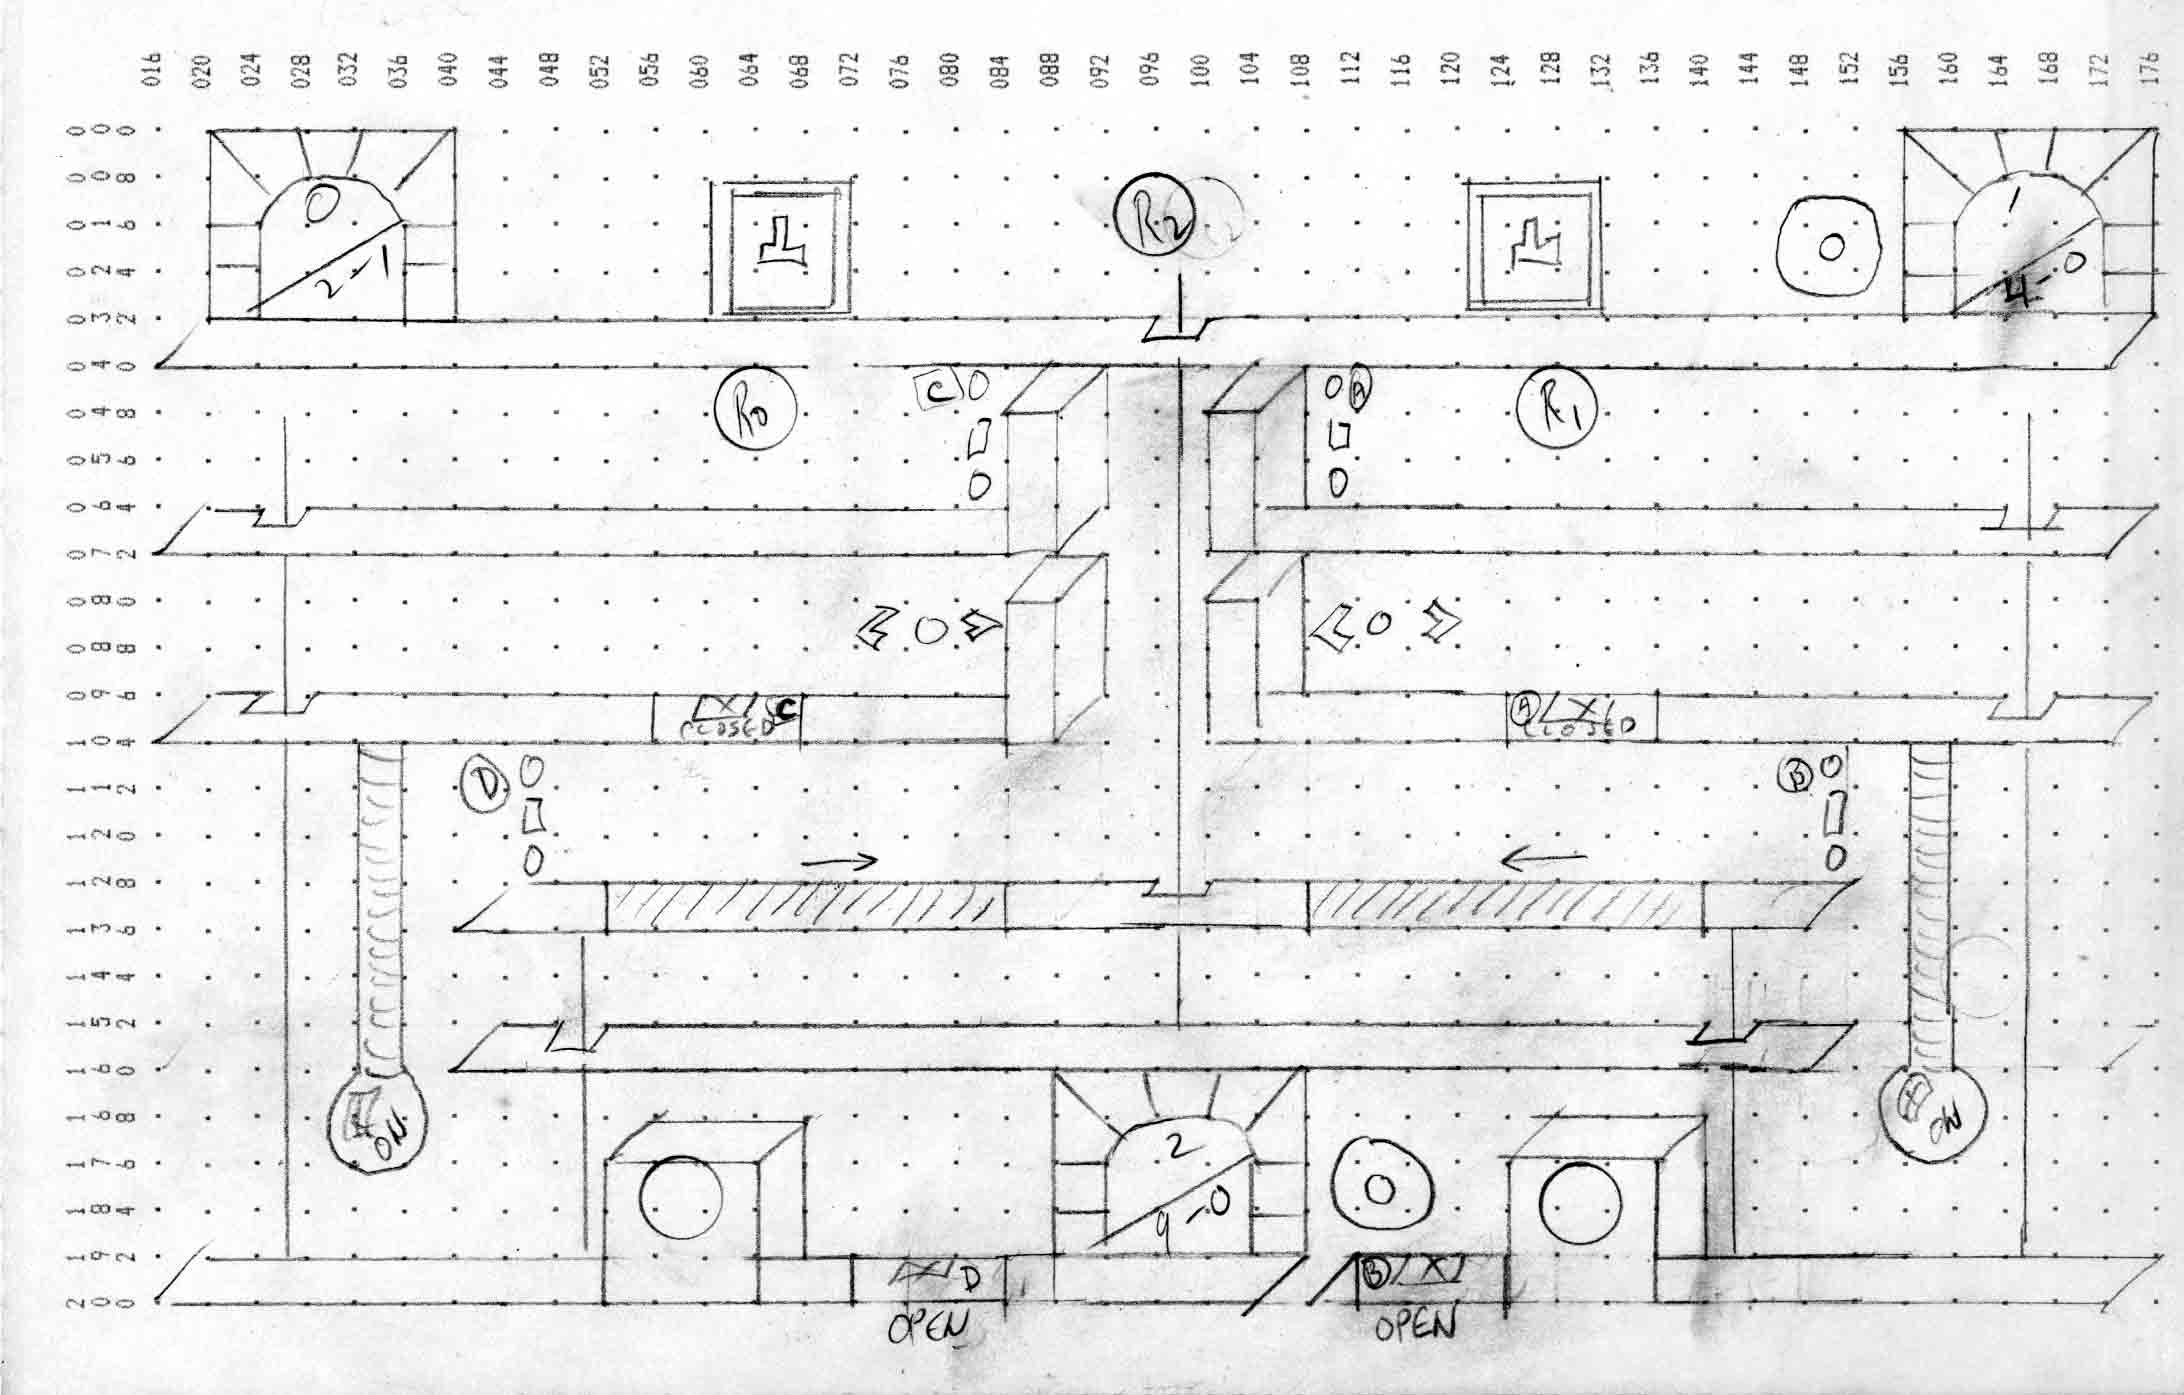 016 020 024 028 032 036 040 044 048 052 056 060 064 068 072 076 080 084 088 092 096 100 104 108 112 116 120 124 128 132 136 140 144 148 152 156 160 164 168 172 176
000
008
016
024
032
040
048
056
064
072
080
088
096
104
112
120
128
136
144
152
160
168
176
184
192
200
0
2-1
R2
1
4-0
R0
C
A
R1
C
CLOSED
A
CLOSED
D
B
ON
2
9-0
ON
D
OPEN
B
OPEN